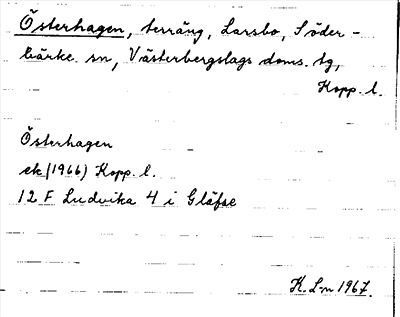 Österhagen, terräng, Larsbo, Söder-
bärke sn, Västerbergslags doms. tg,
Kopp. l.
Österhagen
ek (1966) Kopp. l.
12 F Ludvika 4 i Gläfse
K. Lm 1967.